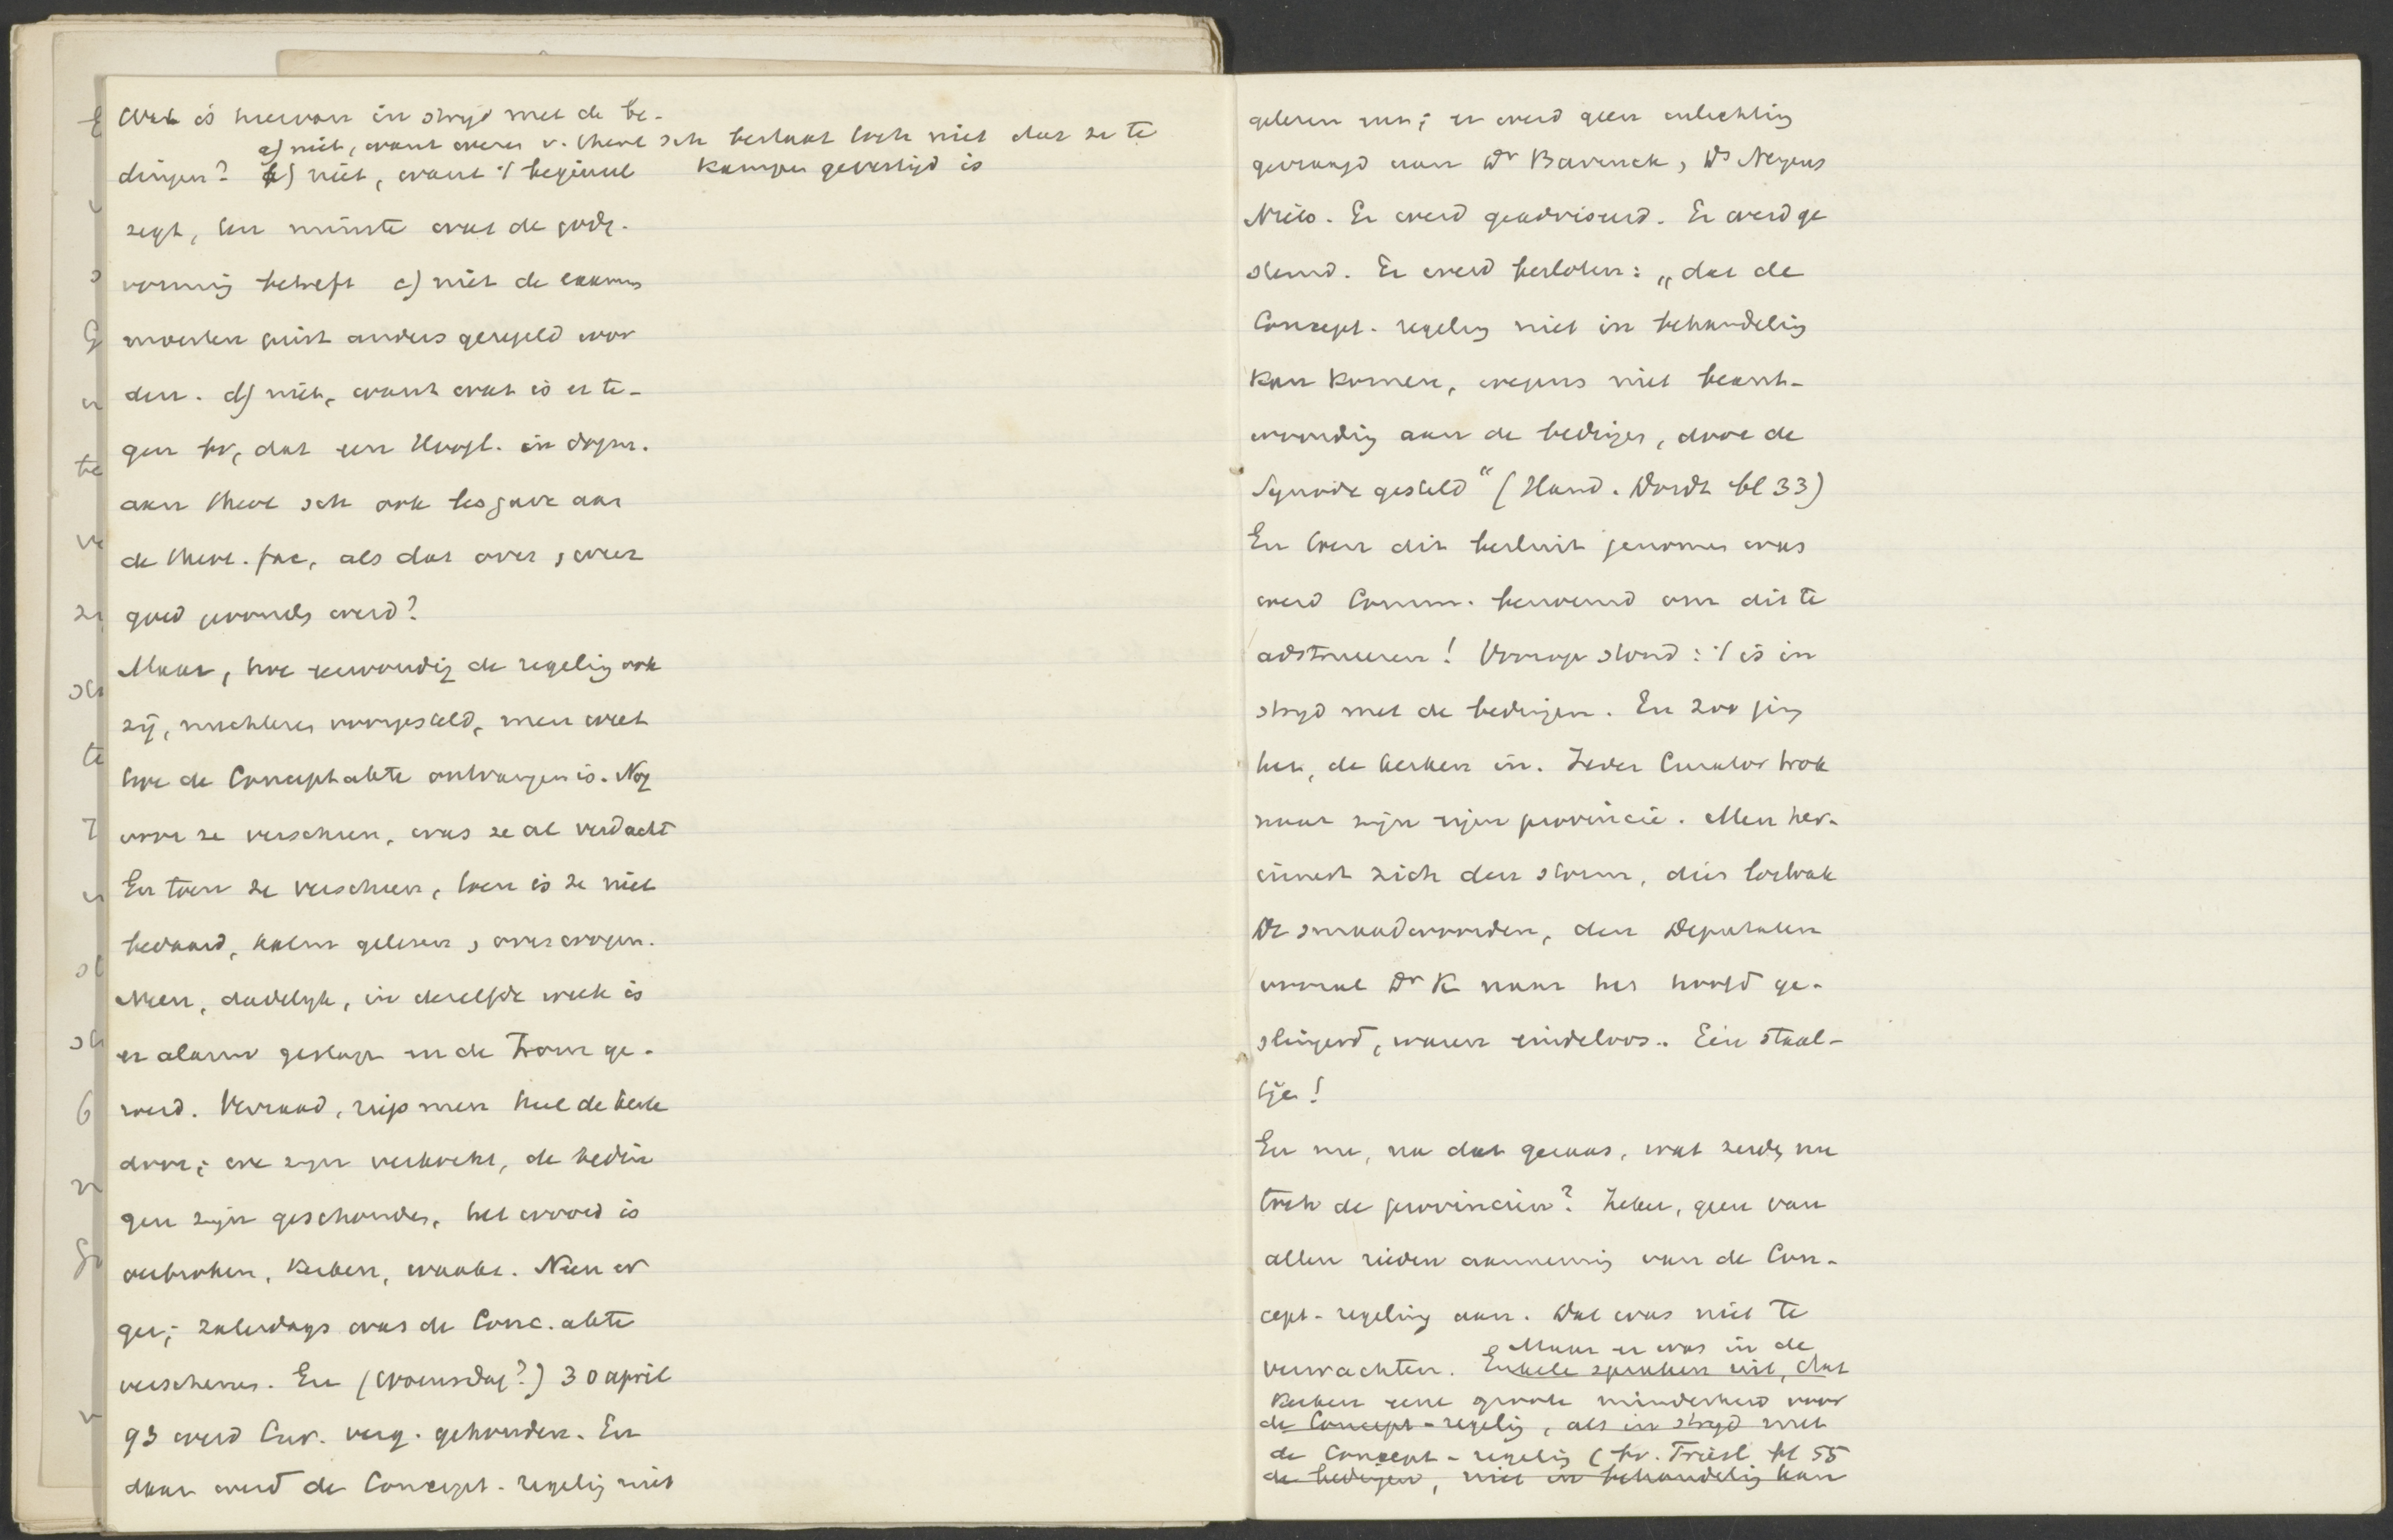 Wat is hiervan in strijd met de be-
a) niet, want wezen v. theol sch bestaat toch niet dat ze te
Kampen gevestigd is
dingen? b) niet, want 't beginsel
zegt, ten minste wat de godg.
vorming betreft c) niet de examens
moesten juist anders geregeld wor
den. d) niet, want wat is er te-
gen bv, dat een Hoogl. in dogm.
aan theol sch ook les gave aan
de theol. fac, als dat over en weer
goed gevonden werd?
Maar, hoe eenvoudig de regeling ook
zij, nuchteren voorgesteld, men weet
hoe de Conceptakte ontvangen is. Nog
voor ze verscheen, was ze al verdacht
En toen ze verscheen, toen is ze niet
bedaard, kalm gelezen, overwogen.
Neen, dadelijk, in dezelfde week is
er alarm geslagen en de Trom ge-
roerd. Verraad, riep men heel de kerk
door; we zijn verkocht, de bedin
gen zijn geschonden, het woord is
verbroken, Kerken, waakt. Neen er
ger; zaterdags was de Conc. akte
verschenen. En (woensdag?) 30 april
93 werd Cur. verg. gehouden. En
daar werd de Concept-regeling niet
gelezen; er werd geen inlichting
gevraagd aan Dr Bavinck, Ds
Niets. Er werd geadviseerd. Er werd ge
stemd. Er werd besloten: „dat de
Concept-regeling niet in behandeling
kan komen, wegens niet beant-
woording aan de bedingen, door de
Synode gesteld" (Hand. Dordt bl 33)
En toen dit besluit genomen was
werd Comm. benoemd om dit te
adstrueeren! Voorop stond: 't is in
strijd met de bedingen. En zoo ging
het, de kerken in. Ieder Curator trok
naar zijn eigen provincie. Men her-
innert zich den storm, die losbrak
De smaadwoorden, den Deputaten
vooral Dr K naar het hoofd ge-
slingerd, waren eindeloos.. Een staal-
tje!
En nu, na dat geraas, wat zeiden nu
toch de provinciën? Zeker, geen van
allen rieden aanneming van de Con-
cept-regeling aan. Dat was niet te
verwachten. Maar er was in de
Enkele spraken uit, dat
Kerken eene groote minderheid voor
de Concept-regeling, als in strijd met
de Concept-regeling (bv. Friesl. bl 55
de bedingen, niet in behandeling kan